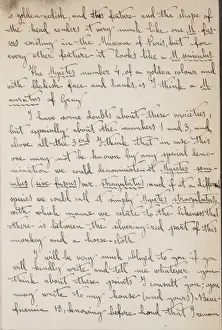 is golden-reddish, and this feature and the shape of
the head renders it very much like one M. fus-
cus existing in the Museum of Paris but for
every other feature it looks like a M. seniculus.
The Mycetes number 4, of a golden colour and
with blackish face and hands, is I think a M.
auratus of Gray
I have some doubts about these varieties,
but especially about the numbers 1 and 3, and
above all the 3rd I think that in case this
one may not be known by any special deno-
mination we could denominate it Mycetes seni-
culus (use fuscus) var. stragulatus and if of a different
species we could call it simply Mycetes stragulatus,
with which name we relate to the likeness that
there is between the shivering-red part of this
monkey and a horse-cloth.
I will be very much obliged to you if you
will kindly write and tell me whatever you
think about these points I consult you; you
may write to my house (and yours) Siem-
13, knowing before-hand that I remain